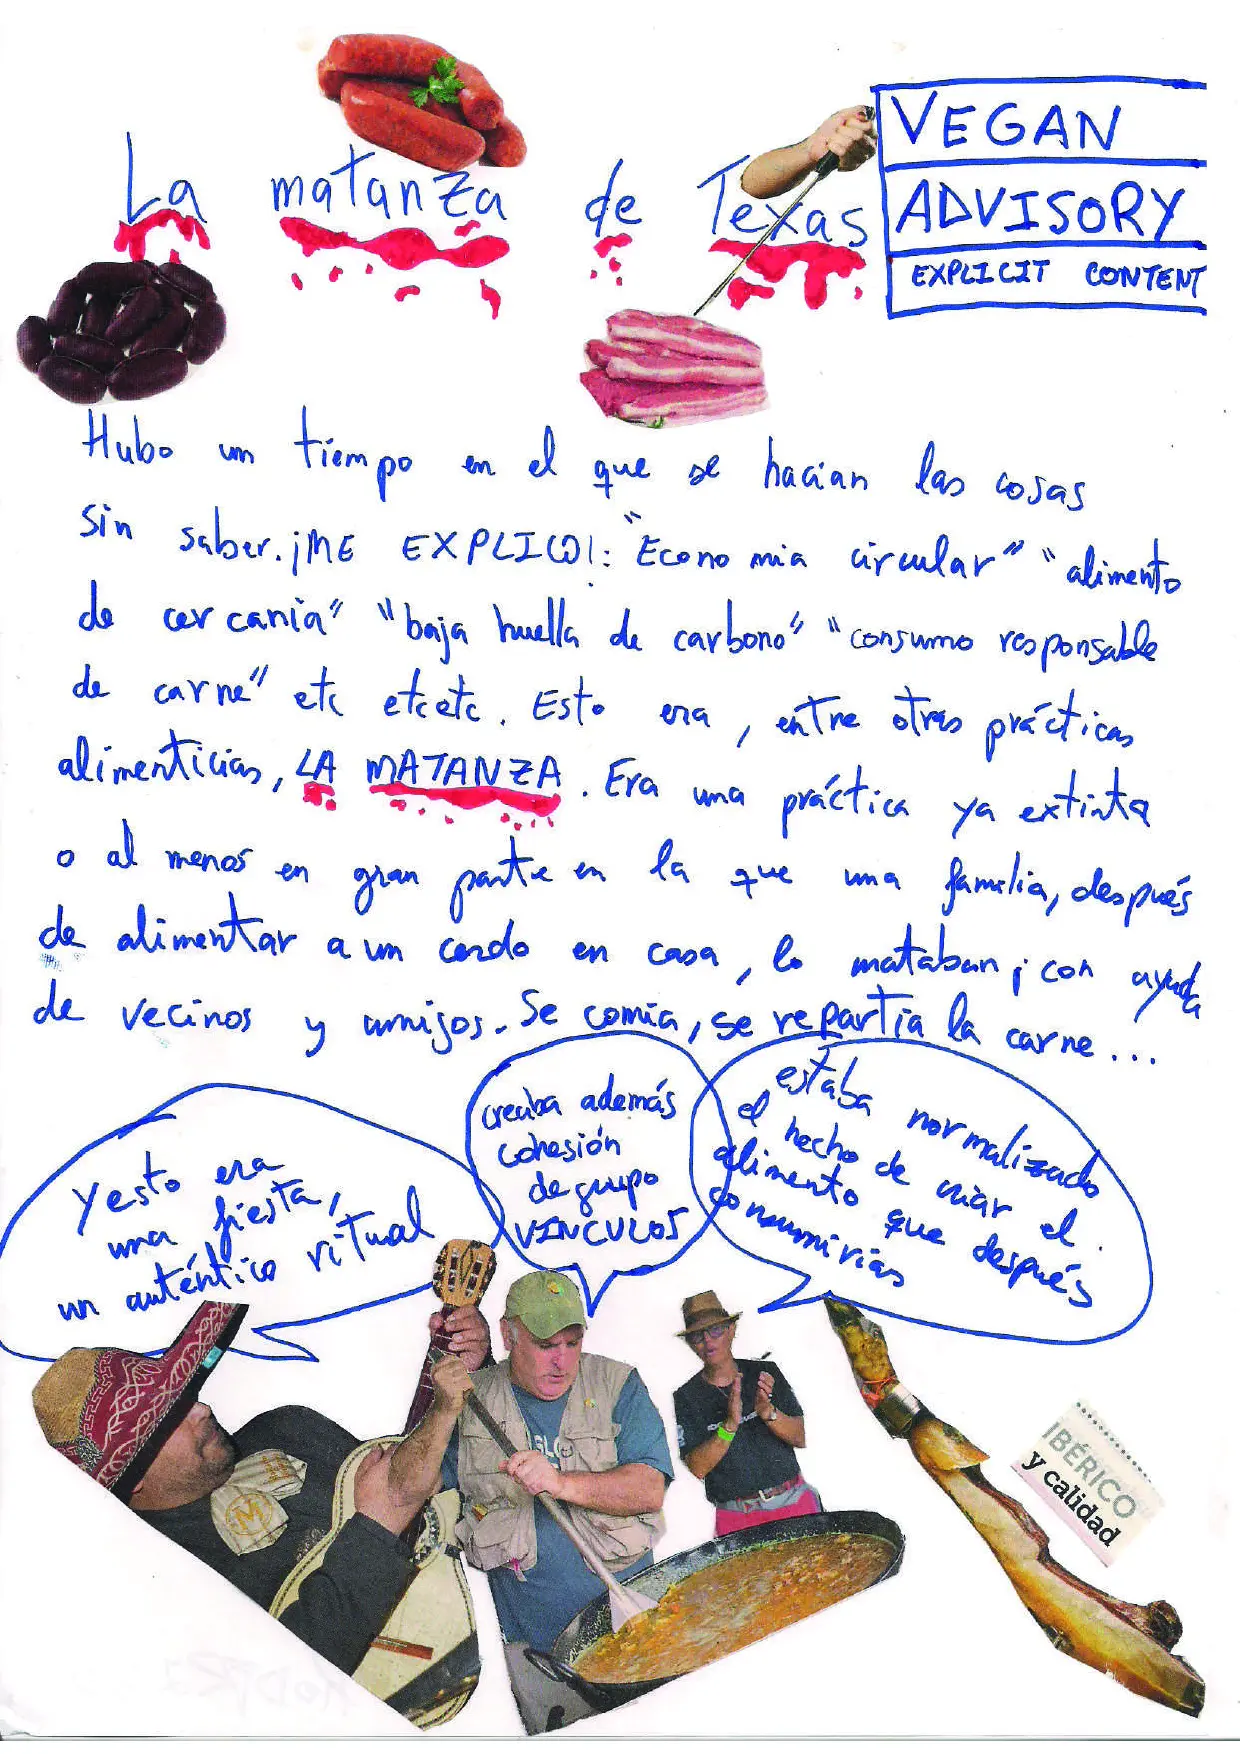 La matanza de Texas
VEGAN
ADVISORY
EXPLICIT CONTENT
Hubo un tiempo en el que se hacían las cosas
sin saber. ¡ME EXPLICO!: "Economia circular" "alimento
de cercanía" "baja huella de carbono" "consumo responsable
de carne" etc etcetc. Esto era, entre otras prácticas
alimenticias, LA MATANZA. Era una práctica ya extinta
o al menos en gran parte en la que una familia, después
de alimentar a un cerdo en casa, lo mataban; con ayuda
de vecinos y amigos. Se comía, se repartía la carne...
y esto era
una fiesta,
un auténtico ritual
creaba además
cohesión
de grupo
VINCULOS
estaba normalizado
el hecho de criar el
alimento que después
consumirias
M
IBÉRICO
y calidad